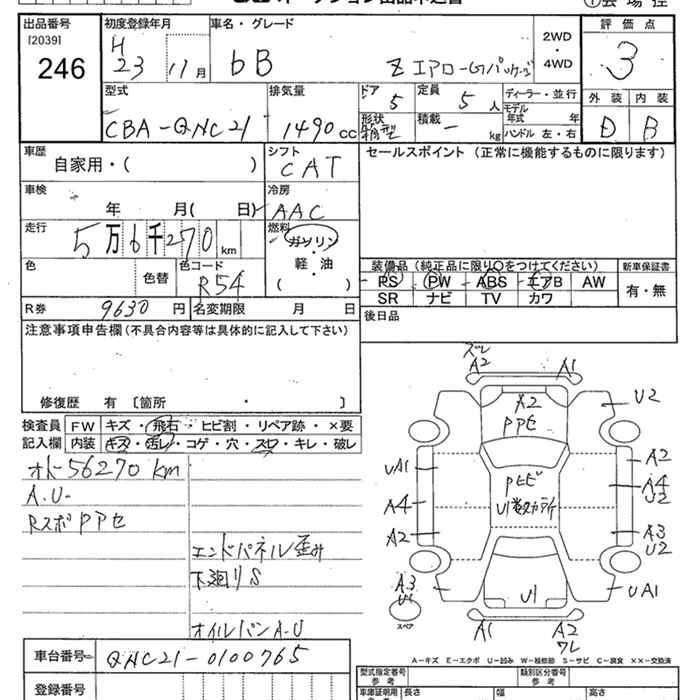 出品番号 初度登録年月 車名・グレード 2WD ・ 4WD 評価点
[2039] H
246 23 11月 bB Z エアロ-Gパッケージ 3
型式 排気量 ドア 定員 ディーラー・並行 外装 内装
5 5人 モデル年式 年
CBA-QNC21 1490cc 形状 箱型 積載 - kg ハンドル 左・右 D B
車歴 シフト セールスポイント (正常に機能するものに限ります)
自家用・( ) CAT
車検 冷房
年 月( 日) AAC
走行 燃料
5万6千270km ガソリン
色 色替 色コード 軽・油 装備品 (純正品に限り○をつけてください) 新車保証書
R54 ( ) PS PW ABS エアB AW 有・無
SR ナビ TV カワ
R券 9630円 名変期限 月 日 後日品
注意事項申告欄(不具合内容等は具体的に記入して下さい)
修復歴 有 〔箇所 ・ 〕
検査員 FW キズ・飛石・ヒビ割・リペア跡・×要
記入欄 内装 キズ・汚レ・コゲ・穴・スロ・キレ・破レ
オドー56270km
A.U-
RスポPPセ
エンドパネル歪み
下廻りS
オイルパンA.U
ズレ
A2 A1
A2 U2
PPセ
UA1 A2
A4 A4
U2
U1数カ所
A2 A3
U2
A3 U1 UA1
U1
スペア
A1 A2
ワレ
車台番号 QNC21-0100765
A-キズ E-エクボ U-凹み W-補修跡 S-サビ C-腐食 ××-交換済
登録番号 型式指定番号 参考 類別区分番号 参考
車庫証明用 長さ 幅 高さ